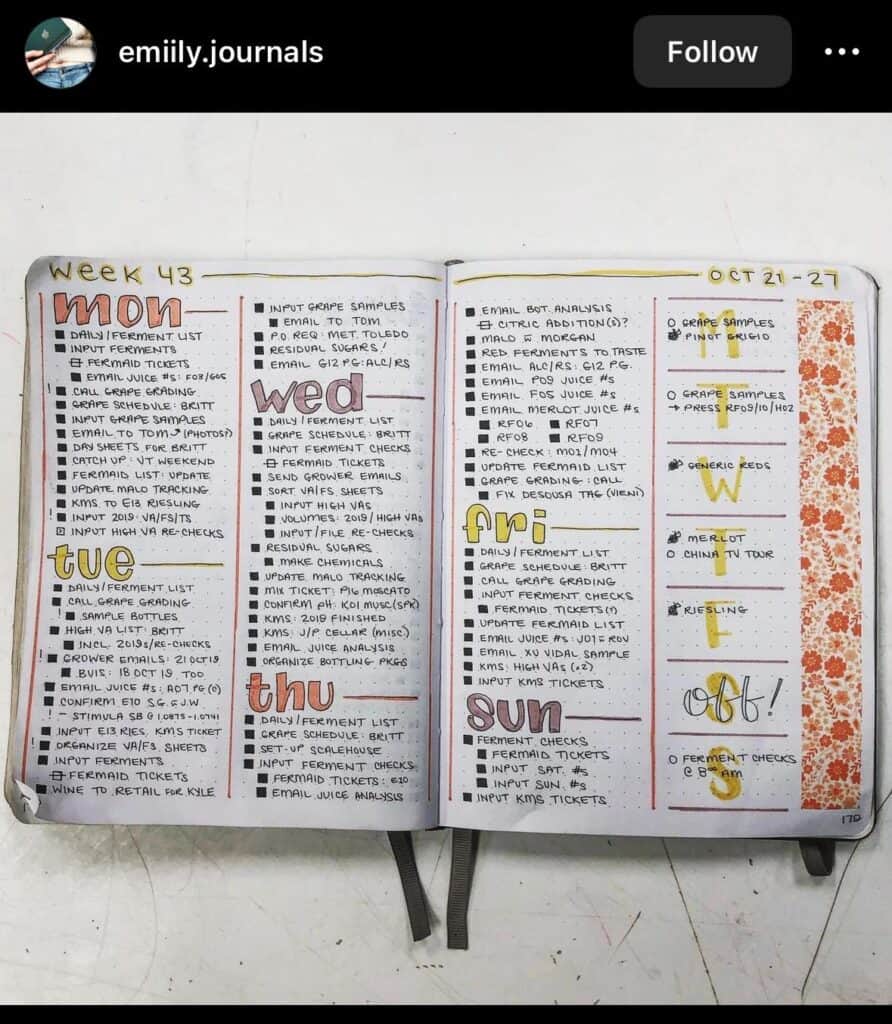 emiily.journals
Follow
WEEK 43
MON
DAILY/FERMENT LIST
INPUT FERMENTS
FERMAID TICKETS
EMAIL JUICE #S: F08/G05
! CALL GRAPE GRADING
GRAPE SCHEDULE: BRITT
INPUT GRAPE SAMPLES
EMAIL TO TOM (PHOTOS?)
DAY SHEETS FOR BRITT
CATCH UP: VT WEEKEND
FERMAID LIST: UPDATE
UPDATE MALO TRACKING
KMS TO E13 RIESLING
! INPUT 2019: VA/FS/TS
INPUT HIGH VA RE-CHECKS
tue
DAILY/FERMENT LIST
CALL GRAPE GRADING
! SAMPLE BOTTLES
HIGH VA LIST: BRITT
INCL. 2019s/RE-CHECKS
! GROWER EMAILS: 21 OCT 19
BVIS: 18 OCT 19, TOO
EMAIL JUICE #S: A07 PG (0)
CONFIRM E10 S.G. & J.W.
! - STIMULA SB @ 1.0875-1.0741
INPUT E13 RIES. KMS TICKET
! ORGANIZE VA/FS SHEETS
INPUT FERMENTS
FERMAID TICKETS
WINE TO RETAIL FOR KYLE
INPUT GRAPE SAMPLES
EMAIL TO TOM
P.O. REQ: MET. TOLEDO
RESIDUAL SUGARS!
EMAIL G12 PG: ALC/RS
wed
DAILY/FERMENT LIST
GRAPE SCHEDULE: BRITT
INPUT FERMENT CHECKS
FERMAID TICKETS
SEND GROWER EMAILS
SORT VA/FS SHEETS
INPUT HIGH VAS
VOLUMES: 2019/HIGH VAS
INPUT/FILE RE-CHECKS
RESIDUAL SUGARS
MAKE CHEMICALS
UPDATE MALO TRACKING
MIX TICKET: P16 MOSCATO
CONFIRM PH: K01 MUSC (SPR)
KMS: 2019 FINISHED
KMS: J/P CELLAR (MISC.)
EMAIL JUICE ANALYSIS
ORGANIZE BOTTLING PKGS
thu
DAILY/FERMENT LIST
GRAPE SCHEDULE: BRITT
SET-UP SCALEHOUSE
INPUT FERMENT CHECKS
FERMAID TICKETS: E10
EMAIL JUICE ANALYSIS
OCT 21-27
EMAIL BOT. ANALYSIS
CITRIC ADDITION(S)?
MALO W MORGAN
RED FERMENTS TO TASTE
EMAIL ALC/RS: G12 PG.
EMAIL P09 JUICE #S
EMAIL F05 JUICE #S
EMAIL MERLOT JUICE #S
RF06 RF07
RF08 RF09
RE-CHECK: M01/M04
UPDATE FERMAID LIST
GRAPE GRADING: CALL
FIX DESOUSA TAG (VIENI)
fri
DAILY/FERMENT LIST
GRAPE SCHEDULE: BRITT
CALL GRAPE GRADING
INPUT FERMENT CHECKS
FERMAID TICKETS(?)
UPDATE FERMAID LIST
EMAIL JUICE #S: J07 & ROV
EMAIL XU VIDAL SAMPLE
KMS: HIGH VAS (x2)
INPUT KMS TICKETS
sun
FERMENT CHECKS
FERMAID TICKETS
INPUT SAT. #S
INPUT SUN. #S
INPUT KMS TICKETS
M
GRAPE SAMPLES
PINOT GRIGIO
T
GRAPE SAMPLES
→ PRESS RF09/10/H02
W
GENERIC REDS
T
MERLOT
CHINA TV TOUR
F
RIESLING
S
off!
S
FERMENT CHECKS
@ 8:00 AM
170